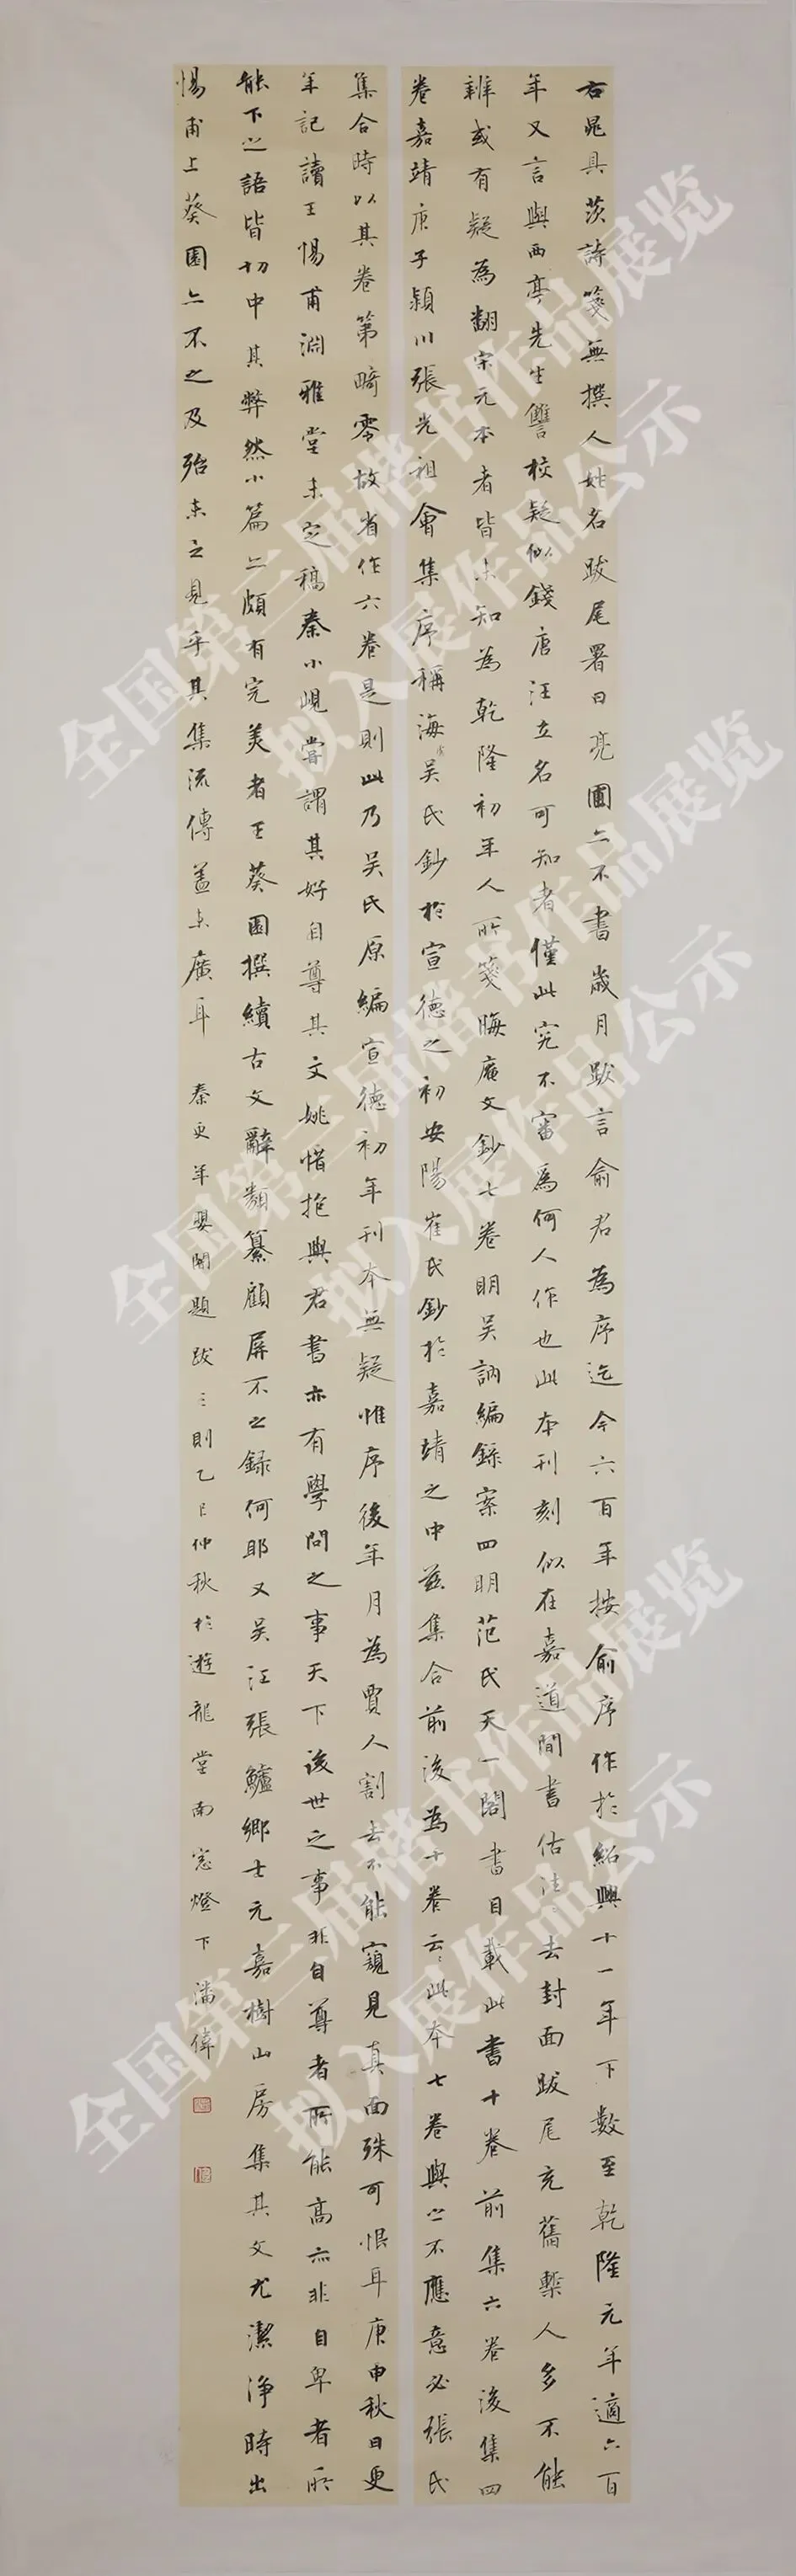 右晁具茨詩箋無撰人姓名跋尾署曰亮圃亦不書歲月跋言俞君為序迄今六百年按俞序作於紹興十一年下數至乾隆元年適六百
年又言與西亭先生讐校疑似錢唐汪立名可知者僅此究不審為何人作也此本刊刻似在嘉道間書估去封面跋尾充舊槧人多不能
辨或有疑為翻宋元本者皆未知為乾隆初年人所箋晦庵文鈔七卷明吳訥編錄案四明范氏天一閣書目載此書十卷前集六卷後集四
卷嘉靖庚子潁川張光祖會集序稱海虞吳氏鈔於宣德之初安陽崔氏鈔於嘉靖之中茲集合前後為十卷云云此本七卷與之不應意必張氏
集合時以其卷第畸零故省作六卷是則此乃吳氏原編宣德初年刊本無疑惟序後年月為賈人割去不能窺見真面殊可恨耳庚申秋日更
年記讀王惕甫淵雅堂未定稿秦小峴嘗謂其好自尊其文姚惜抱與君書亦有學問之事天下後世之事非自尊者所能高亦非自卑者所
能下之語皆切中其弊然小篇亦頗有完美者王葵園撰續古文辭類纂顧屏不之錄何耶又吳江張鱸鄉士元嘉樹山房集其文尤潔淨時出
惕甫上葵園亦不之及殆未之見乎其集流傳蓋未廣耳 秦更年嬰闇題跋三則乙巳仲秋於遊龍堂南窗燈下潘偉
全国第三届楷书作品展览
拟入展作品公示
全国第三届楷书作品展览
拟入展作品公示
全国第三届楷书作品展览
拟入展作品公示